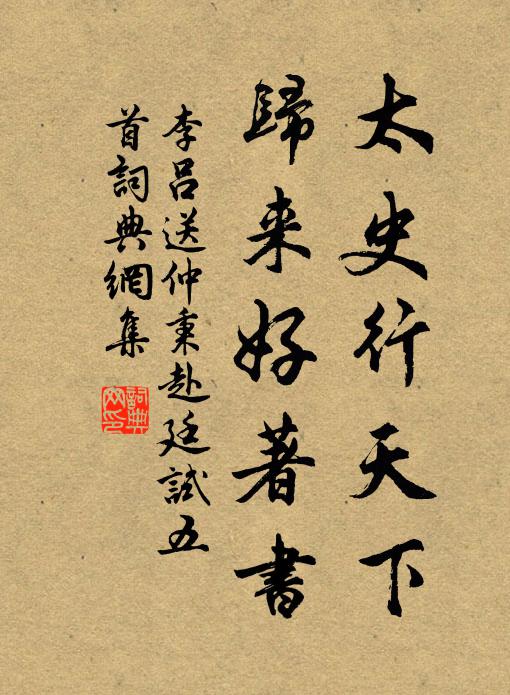 太史行天下
歸来好著書
李呂送仲秉赴廷試五
首詞典網集
詞典网印